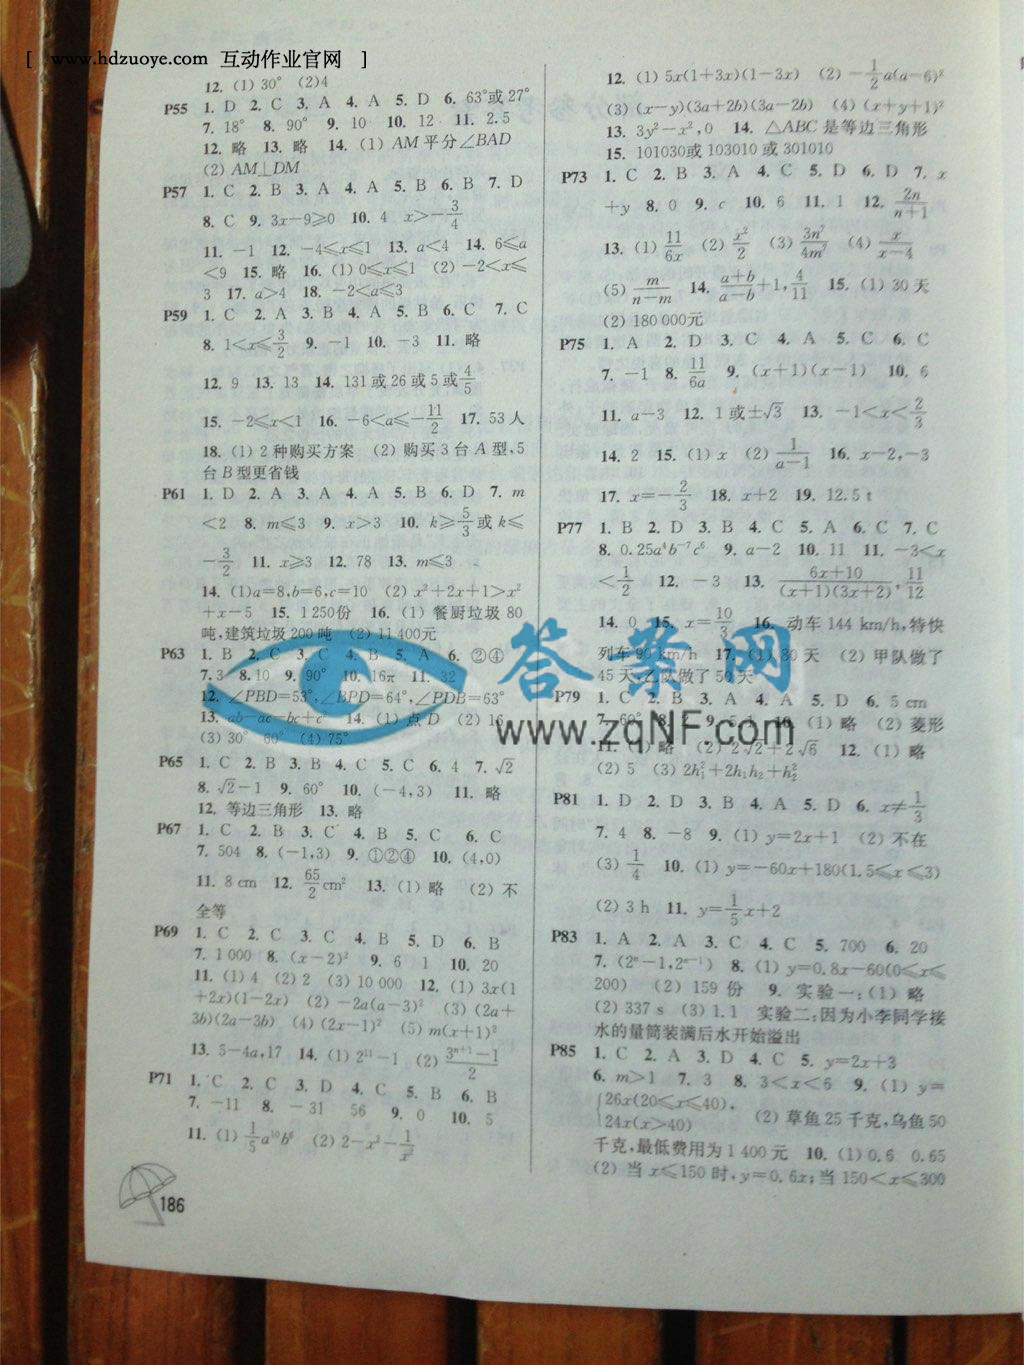 [ www.hdzuoye.com 互动作业官网 ]
12. (1) 30° (2)4
P55 1. D 2. C 3. A 4. A 5. D 6. 63°或27°
7. 18° 8. 90° 9. 10 10. 12 11. 2.5
12. 略 13. 略 14. (1) AM平分∠BAD
(2) AM⊥DM
P57 1. C 2. B 3. A 4. A 5. B 6. B 7. D
8. C 9. 3x-9≥0 10. 4 x>-3/4
11. -1 12. -4≤x≤1 13. a<4 14. 6≤a
<9 15. 略 16. (1) 0≤x≤1 (2) -2<x≤
3 17. a>4 18. -2<a≤3
P59 1. C 2. A 3. B 4. A 5. B 6. C 7. C
8. 1<x≤3/2 9. -1 10. -3 11. 略
12. 9 13. 13 14. 131或26或5或4/5
15. -2≤x<1 16. -6<a≤-11/2 17. 53人
18. (1) 2种购买方案 (2) 购买3台A型,5
台B型更省钱
P61 1. D 2. A 3. A 4. A 5. B 6. D 7. m
<2 8. m≤3 9. x>3 10. k≥5/3或k≤
-3/2 11. x≥3 12. 78 13. m≤3
14. (1)a=8,b=6,c=10 (2) x²+2x+1>x²
+x-5 15. 1250份 16. (1) 餐厨垃圾80
吨,建筑垃圾200吨 (2) 11400元
P63 1. B 2. C 3. C 4. B 5. A 6. ②④
7. 3 8. 10 9. 90° 10. 16π 11. 32
12. ∠PBD=53°,∠BPD=64°,∠PDB=63°
13. ab-ac-bc+c² 14. (1) 点D (2) 16
(3) 30° 60° (4) 75°
P65 1. C 2. B 3. B 4. C 5. C 6. 4 7. √2
8. √2-1 9. 60° 10. (-4,3) 11. 略
12. 等边三角形 13. 略
P67 1. C 2. B 3. C 4. B 5. C 6. C
7. 504 8. (-1,3) 9. ①②④ 10. (4,0)
11. 8 cm 12. 65/2 cm² 13. (1) 略 (2) 不
全等
P69 1. C 2. C 3. C 4. B 5. D 6. B
7. 1000 8. (x-2)² 9. 6 1 10. 20
11. (1) 4 (2) 2 (3) 10000 12. (1) 3x(1
+2x)(1-2x) (2) -2a(a-3)² (3) (2a+
3b)(2a-3b) (4) (2x-1)² (5) m(x+1)²
13. 5-4a,17 14. (1) 2¹¹-1 (2) (3ⁿ⁺¹-1)/2
P71 1. C 2. C 3. D 4. C 5. B 6. B
7. -11 8. -31 56 9. 0 10. 5
11. (1) 1/5 a¹⁰b⁶ (2) 2-x²-1/x²
186
12. (1) 5x(1+3x)(1-3x) (2) -1/2 a(a-6)²
(3) (x-y)(3a+2b)(3a-2b) (4) (x+y+1)²
13. 3y²-x²,0 14. △ABC是等边三角形
15. 101030或103010或301010
P73 1. C 2. B 3. A 4. C 5. D 6. D 7. x
+y 8. 0 9. c 10. 6 11. 1 12. 2n/(n+1)
13. (1) 11/6x (2) x²/2 (3) 3n²/4m² (4) x/(x-4)
(5) m/(n-m) 14. (a+b)/(a-b)+1,4/11 15. (1) 30天
(2) 180000元
P75 1. A 2. D 3. C 4. A 5. C 6. C
7. -1 8. 11/6a 9. (x+1)(x-1) 10. 6
11. a-3 12. 1或±√3 13. -1<x<2/3
14. 2 15. (1) x (2) 1/(a-1) 16. x-2,-3
17. x=-2/3 18. x+2 19. 12.5 t
P77 1. B 2. D 3. B 4. C 5. A 6. C 7. C
8. 0.25a⁴b⁻⁷c⁶ 9. a-2 10. 11 11. -3<x
<1/2 12. -3 13. (6x+10)/((x+1)(3x+2)),11/12
14. 0 15. x=10/3 16. 动车144 km/h,特快
列车90 km/h 17. (1) 30天 (2) 甲队做了
45天,乙队做了50天
P79 1. C 2. B 3. A 4. A 5. D 6. 5 cm
7. 60° 8. 9. 10. (1) 略 (2) 菱形
11. (1) 略 (2) 2√2+2√6 12. (1) 略
(2) 5 (3) 2h₁²+2h₁h₂+h₂²
P81 1. D 2. D 3. B 4. A 5. D 6. x≠1/3
7. 4 8. -8 9. (1) y=2x+1 (2) 不在
(3) 1/4 10. (1) y=-60x+180(1.5≤x≤3)
(2) 3 h 11. y=1/5 x+2
P83 1. A 2. A 3. C 4. C 5. 700 6. 20
7. (2ⁿ-1,2ⁿ⁻¹) 8. (1) y=0.8x-60(0≤x≤
200) (2) 159份 9. 实验一:(1) 略
(2) 337 s (3) 1.1 实验二:因为小李同学接
水的量筒装满后水开始溢出
P85 1. C 2. A 3. D 4. C 5. y=2x+3
6. m>1 7. 3 8. 3<x<6 9. (1) y=
{26x(20≤x≤40),
24x(x>40) (2) 草鱼25千克,乌鱼50
千克,最低费用为1400元 10. (1) 0.6 0.65
(2) 当x≤150时,y=0.6x;当150<x≤300
答案网
www.zqNF.com